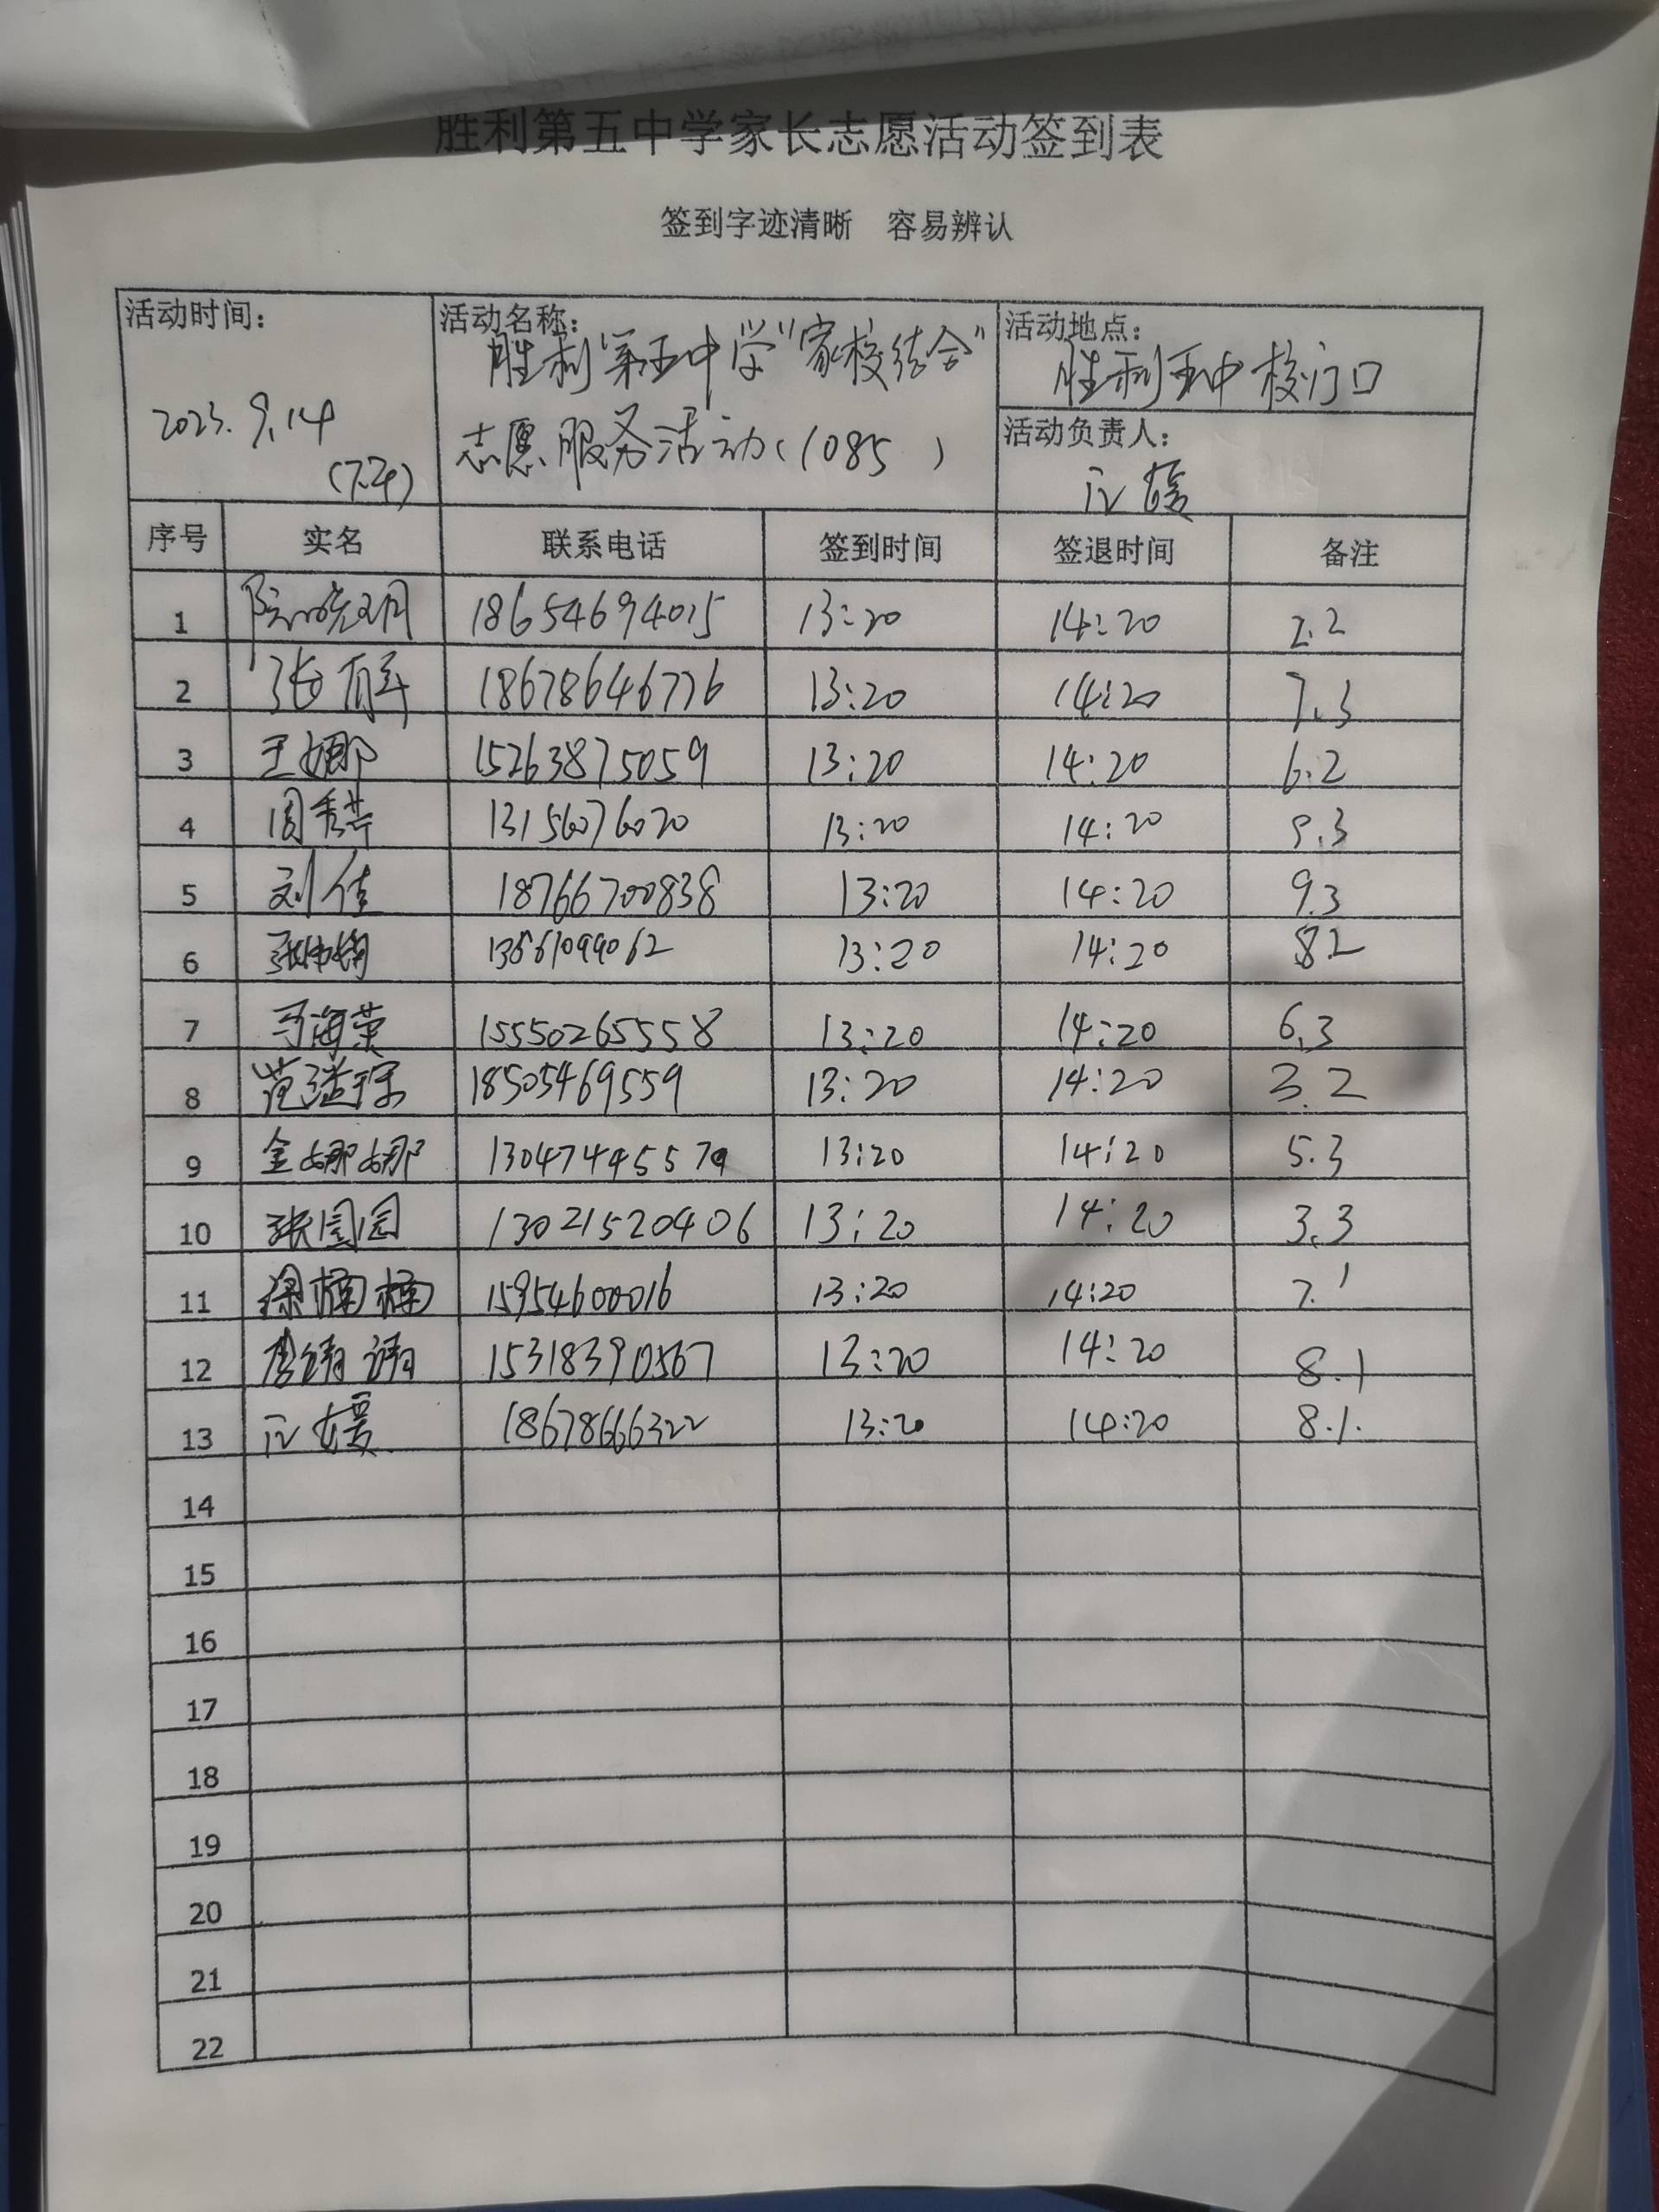 胜利第五中学家长志愿活动签到表
签到字迹清晰 容易辨认
活动时间：
2023.9.14
(下午)
活动名称：
胜利第五中学"家校结合"
志愿服务活动(1085 )
活动地点：
胜利五中校门口
活动负责人：
媛
序号 实名 联系电话 签到时间 签退时间 备注
1 18654694015 13:20 14:20 2.2
2 张 18678646776 13:20 14:20 7.3
3 王娜 15263875059 13:20 14:20 6.2
4 周秀 13156076020 13:20 14:20 9.3
5 刘佳 18766700838 13:20 14:20 9.3
6 张 13:20 14:20 8.2
7 马海荣 15550265558 13:20 14:20 6.3
8 范 18505469559 13:20 14:20 3.2
9 金娜娜 13047449557 13:20 14:20 5.3
10 张园园 13021520406 13:20 14:20 3.3
11 梁楠楠 15954600016 13:20 14:20 7.1
12 15318390567 13:20 14:20 8.1
13 媛 18678666322 13:20 14:20 8.1.
14
15
16
17
18
19
20
21
22